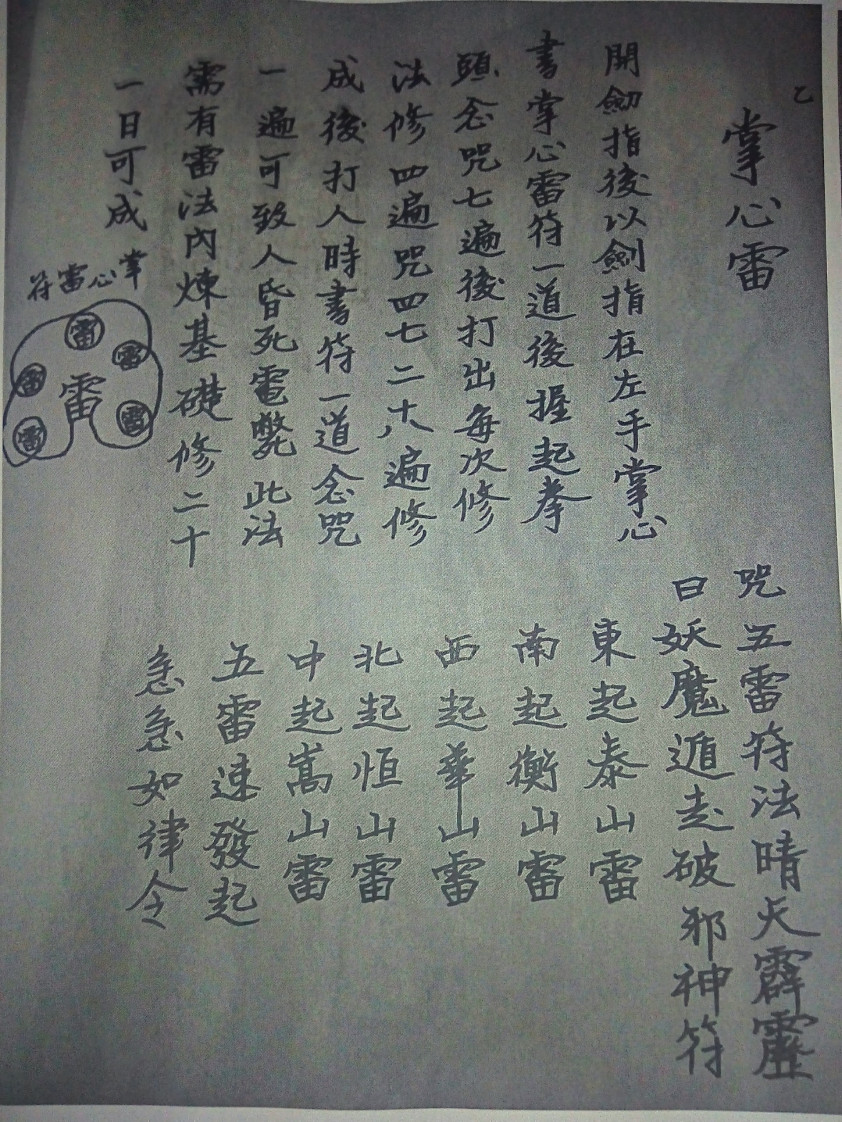 乙
掌心雷
開劍指後以劍指在左手掌心
書掌心雷符一道後握起拳
頭念咒七遍後打出每次修
法修四遍咒四七二十八遍修
成後打人時書符一道念咒
一遍可致人昏死電斃此法
需有雷法內煉基礎修二十
一日可成
掌心雷符
雷
雷
雷
雷
雷
雷
咒五雷符法晴天霹靂
曰妖魔遁走破邪神符
東起泰山雷
南起衡山雷
西起華山雷
北起恒山雷
中起嵩山雷
五雷速發起
急急如律令